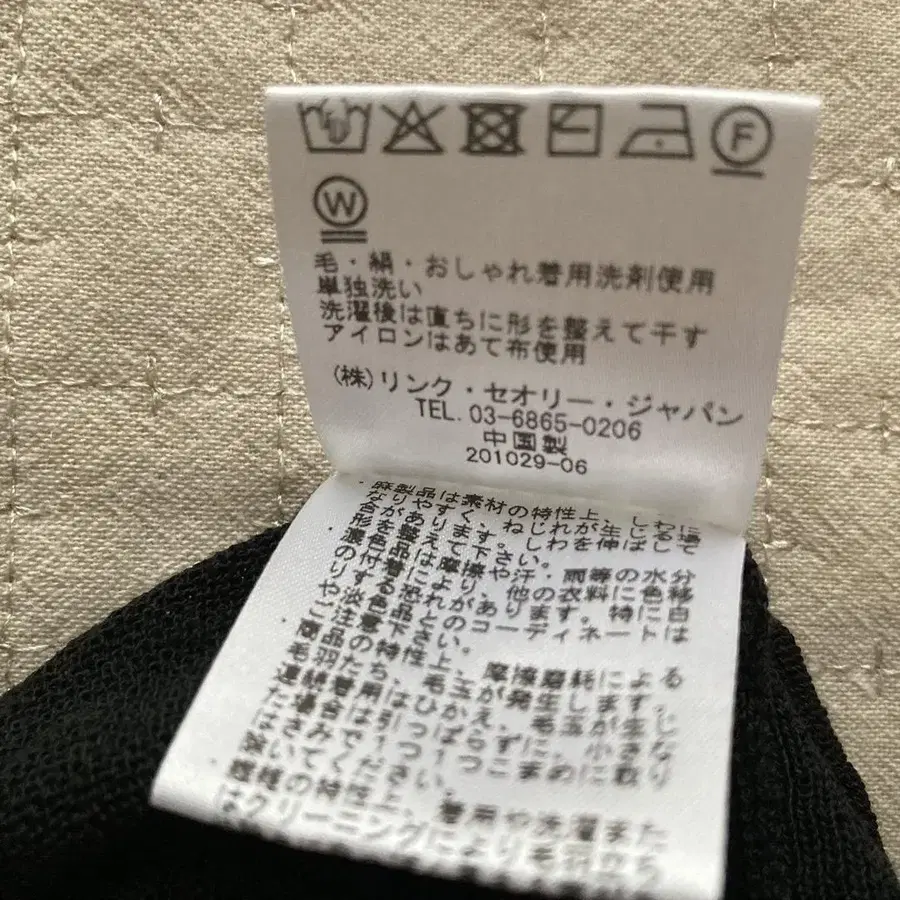 F
W
毛・絹・おしゃれ着用洗剤使用
単独洗い
洗濯後は直ちに形を整えて干す
アイロンはあて布使用
(株)リンク・セオリー・ジャパン
TEL. 03-6865-0206
中国製
201029-06
・麻製品は素材の特性上、しわに
なりやすく、ねじれが生じる場
合があります。しわを伸ばして
形を整えて下さい。
濃色品は摩擦や汗・雨等の水分
の付着により、他の衣料に色移
りする恐れがあります。特に白
や淡色とのコーディネートは
ご注意下さい。
商品の特性上、摩擦磨耗による
毛羽たち、毛玉が発生します。
連続着用はひかえ、毛玉が生じ
た場合は引っぱらずに、小さな
はさみで1つ1つこまめに取り
除いてください。
・繊維の特性上、着用や洗濯また
はクリーニングにより毛羽立ち